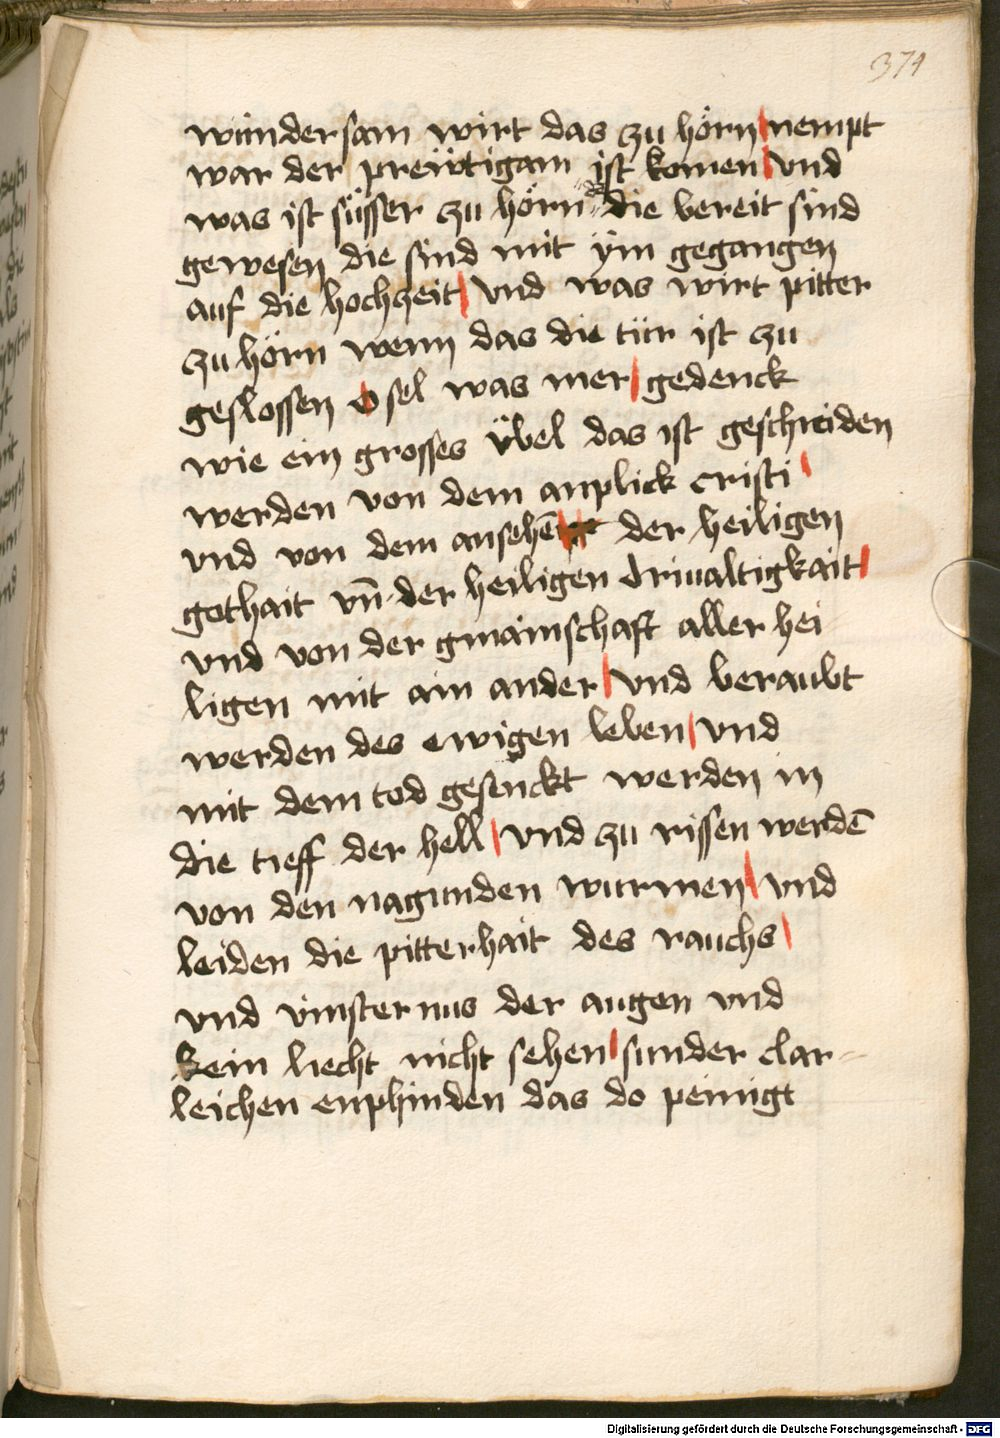 374
wundersam wirt das zu hörn nempt
war der preẅtigam ist komen vnd
was ist süsser zu hörn die bereit sind
gewesen die sind mit ÿm gegangen
auf die hochzeit vnd was wirt pitter
zu hörn wenn das die tür ist zu
geslossen O sel was mer gedenck
wie ein grosses übel das ist gescheiden
werden von dem anplick cristi
vnd von dem ansehē der heiligen
gothait vn̄ der heiligen driualtigkait
vnd von der gmainschaft aller hei
ligen mit ain ander vnd beraubt
werden des ewigen leben vnd
mit dem tod gesenckt werden in
die tieff der hell vnd zu rissen werdē
von den nagunden wurmen vnd
leiden die pitterhait des rauchs
vnd vinsternus der augen vnd
kein liecht nicht sehen sunder clar-
leichen enphinden das do peinigt
Digitalisierung gefördert durch die Deutsche Forschungsgemeinschaft - DFG